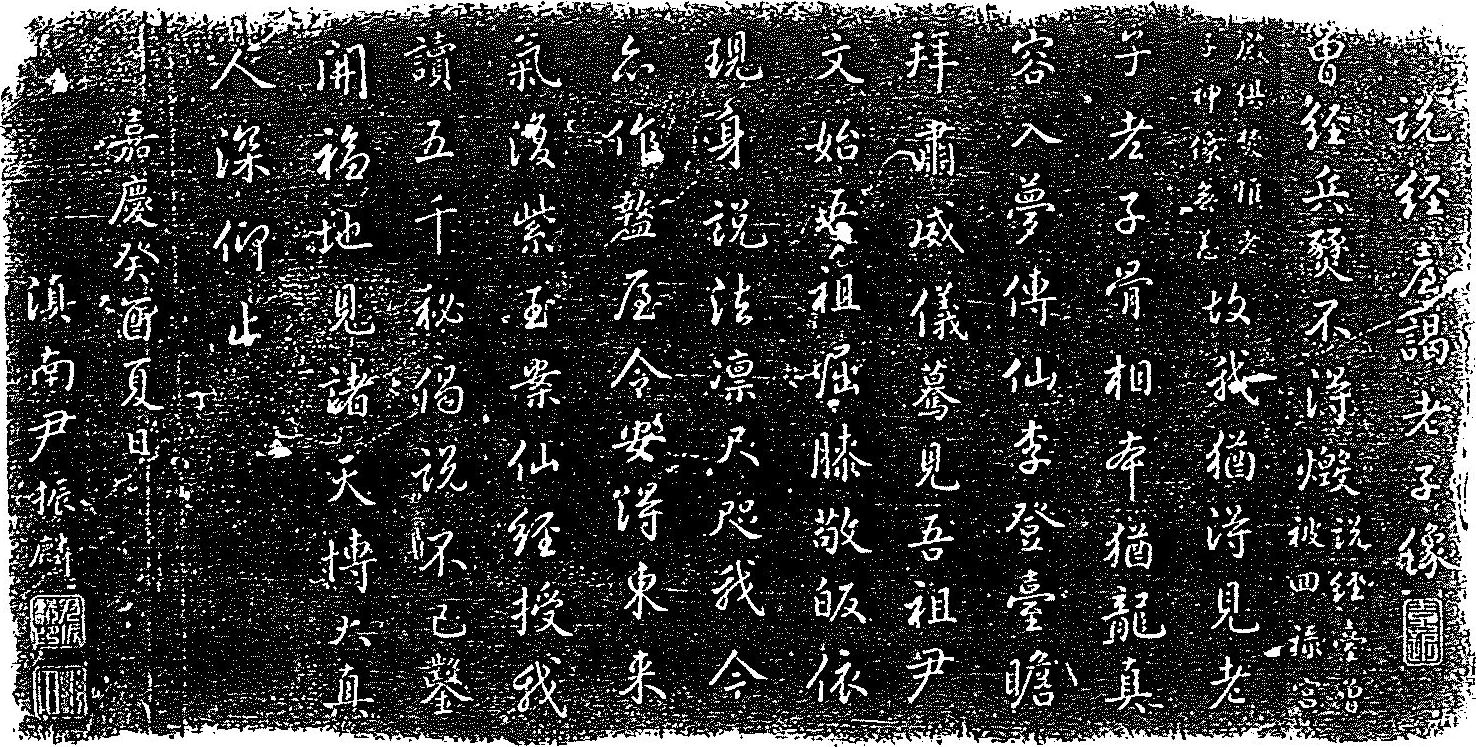 説経臺謁老子像
曾經兵燹不得燬説経臺曾
被回祿宫
殿俱燹惟老
子神像無恙故我猶得見老
子老子骨相本猶龍真
容入夢傳仙李登臺瞻
拜肅威儀驀見吾祖尹
文始吾祖屈膝敬皈依
現身説法凛尺咫我今
亦作盩厔令安得東来
氣復紫玉案仙経授我
讀五千秘偈説不已鑿
開福地見諸天博大真
人深仰止
嘉慶癸酉夏日
滇南尹振麟